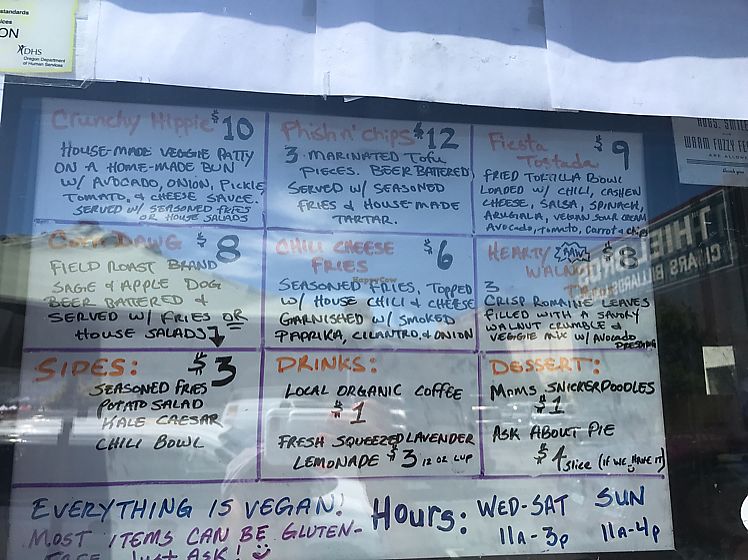 standards
ices
ON
DHS
Oregon Department
of Human Services
Crunchy Hippie $10
HOUSE-MADE VEGGIE PATTY
ON A HOME-MADE BUN
W/ AVOCADO, ONION, PICKLE,
TOMATO, & CHEESE SAUCE.
SERVED W/ SEASONED FRIES
OR HOUSE SALADS
Phish n' Chips $12
3 MARINATED TOFU
PIECES. BEER BATTERED
SERVED W/ SEASONED
FRIES & HOUSE-MADE
TARTAR.
Fiesta $9
Tostada
FRIED TORTILLA BOWL
LOADED W/ CHILI, CASHEW
CHEESE, SALSA, SPINACH,
ARUGULA, VEGAN SOUR CREAM
AVOCADO, TOMATO, CARROT & CHIPS
HUGS, SMILE
WARM FUZZY FE
ARE ALLOWE
thank you
Corn Dawg $8
FIELD ROAST BRAND
SAGE & APPLE DOG
BEER BATTERED &
SERVED W/ FRIES OR
HOUSE SALADS
CHILI CHEESE $6
FRIES
SEASONED FRIES, TOPPED
W/ HOUSE CHILI & CHEESE
GARNISHED W/ SMOKED
PAPRIKA, CILANTRO, & ONION
HappyCow
HEARTY RAW $8
WALNUT
3
CRISP ROMAINE LEAVES
FILLED WITH A SAVORY
WALNUT CRUMBLE &
VEGGIE MIX W/ AVOCADO
DRESSING
SIDES: $3
SEASONED FRIES
POTATO SALAD
KALE CAESAR
CHILI BOWL
DRINKS:
LOCAL ORGANIC COFFEE
$1
FRESH SQUEEZED LAVENDER
LEMONADE $3 12 OZ CUP
DESSERT:
MOMS SNICKERDOODLES
$1
ASK ABOUT PIE
$4 slice (IF WE HAVE IT)
EVERYTHING IS VEGAN!
MOST ITEMS CAN BE GLUTEN-
FREE Just ASK!
Hours: WED-SAT SUN
11A-3p 11A-4p